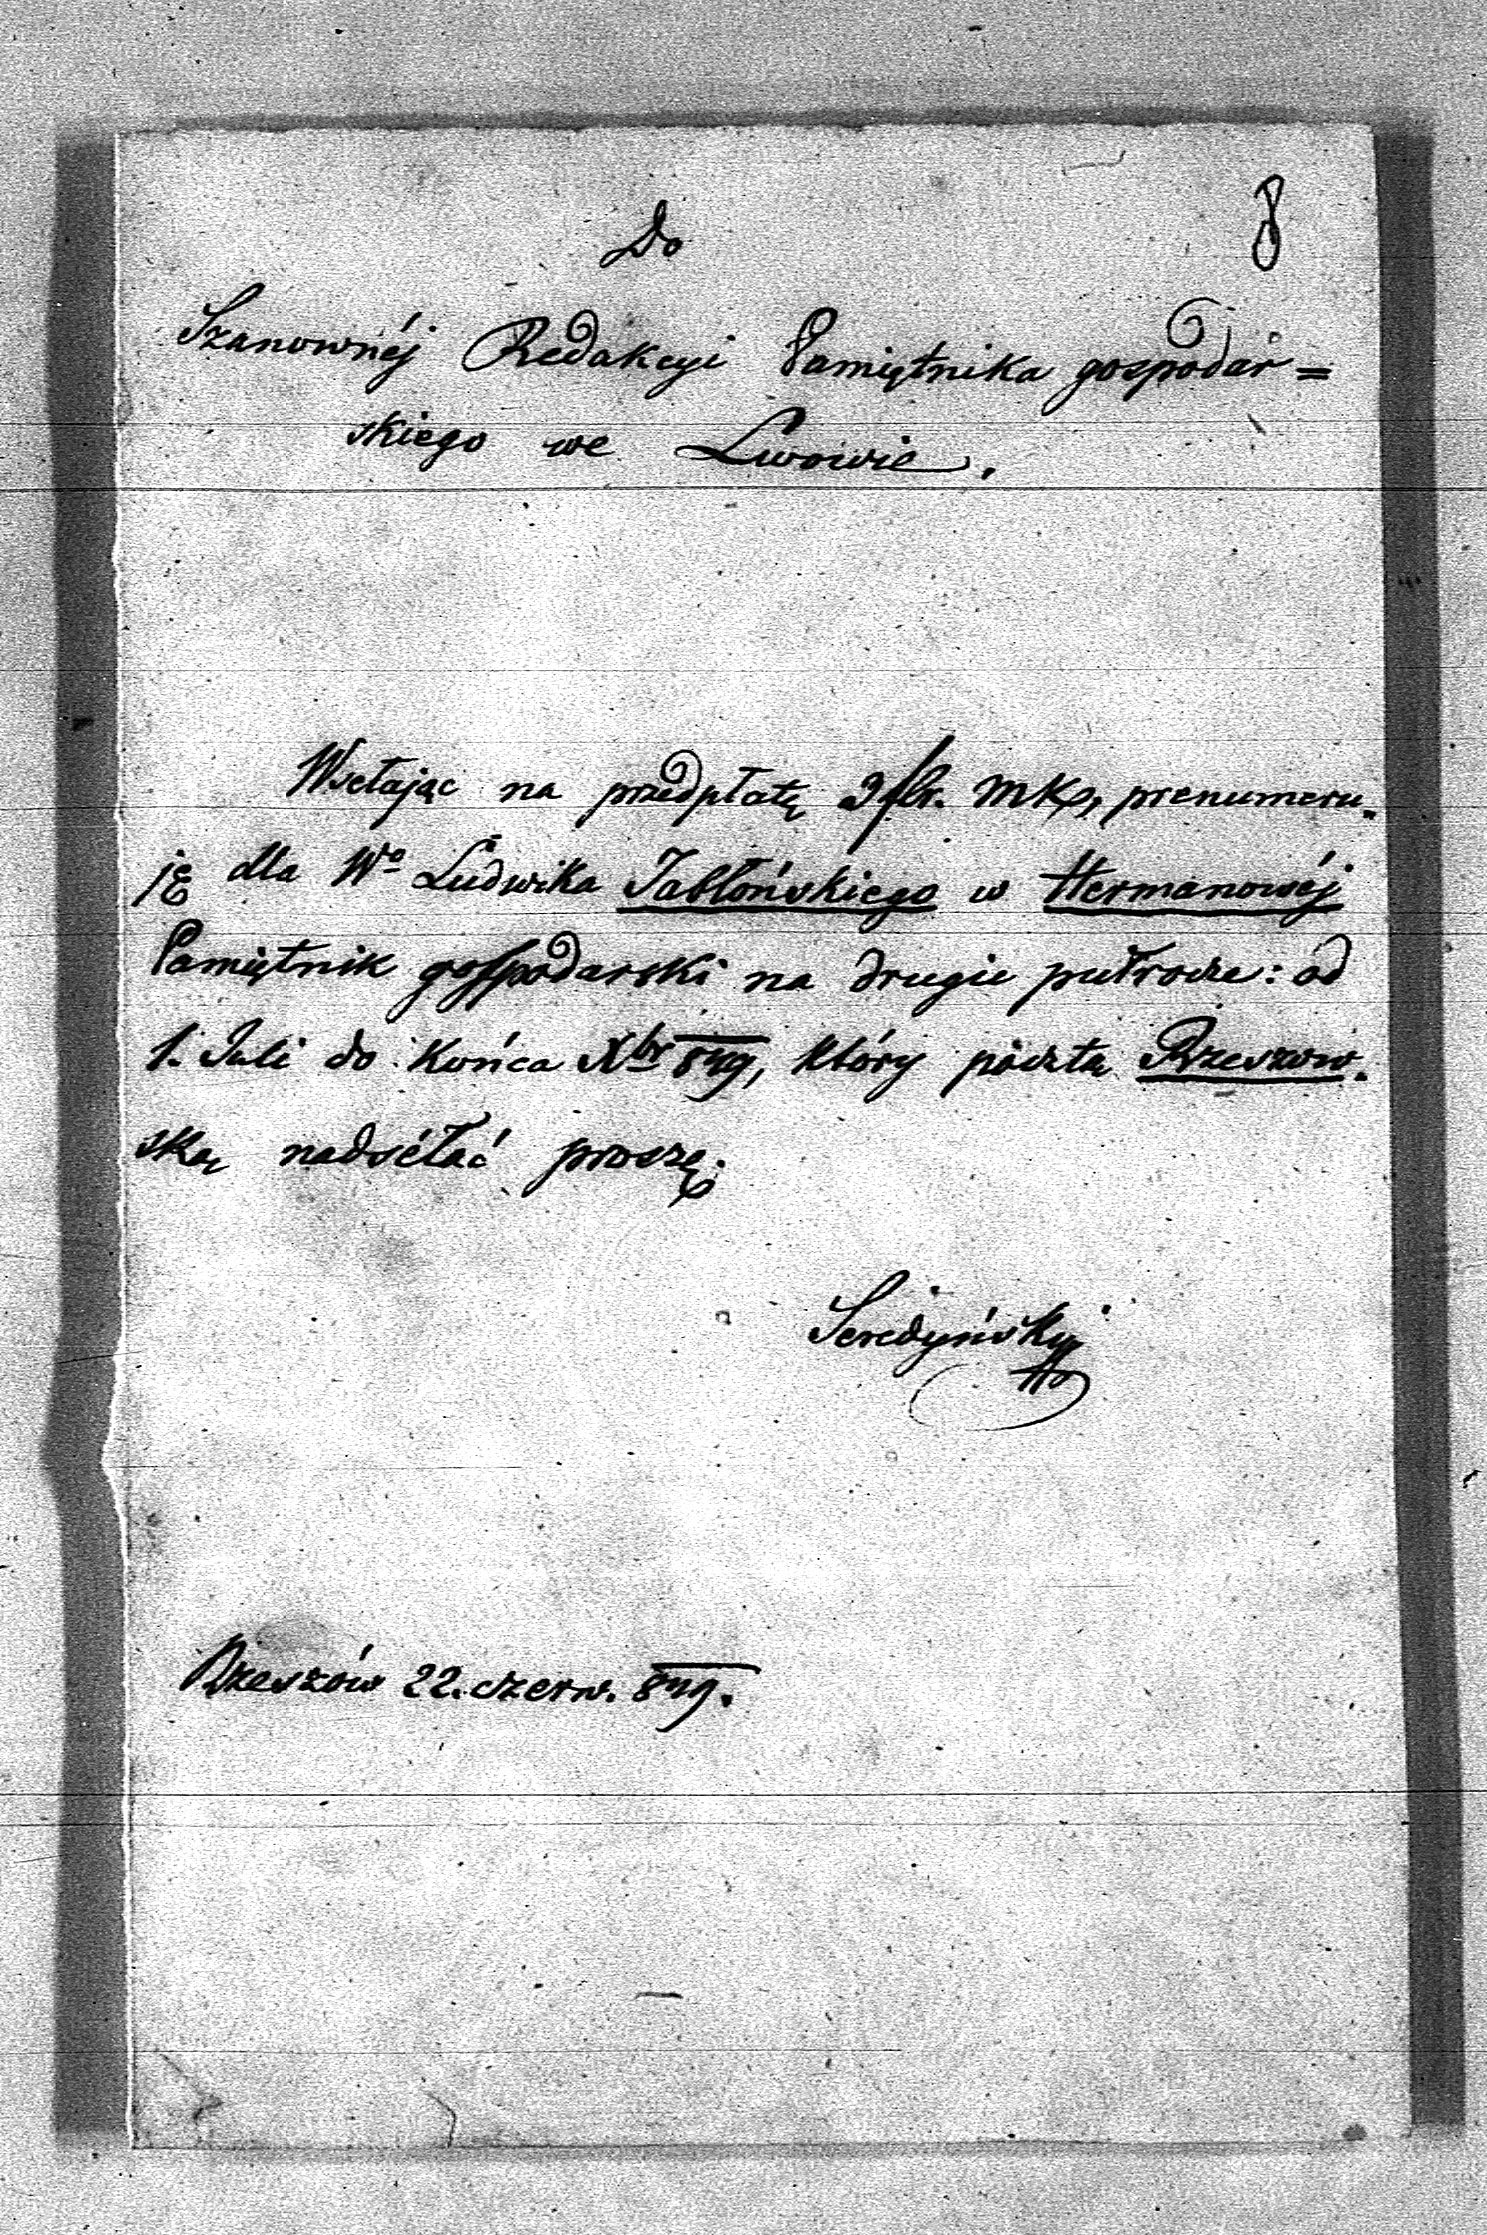 8
Do
Szanownéj Redakcyi Pamiętnika gospodar=
skiego we Lwowie.
Wsełając na przedpłatę 2 flr. MK, prenumeru-
ję dla Wº Ludwika Jabłońskiego w Hermanowéj
Pamiętnik gospodarski na drugie pułrocze: od
1. Juli do końca Xbr 849, który pocztą Rzeszow-
ską nadséłać proszę.
Seredyński
Rzeszów 22. czerw. 849.